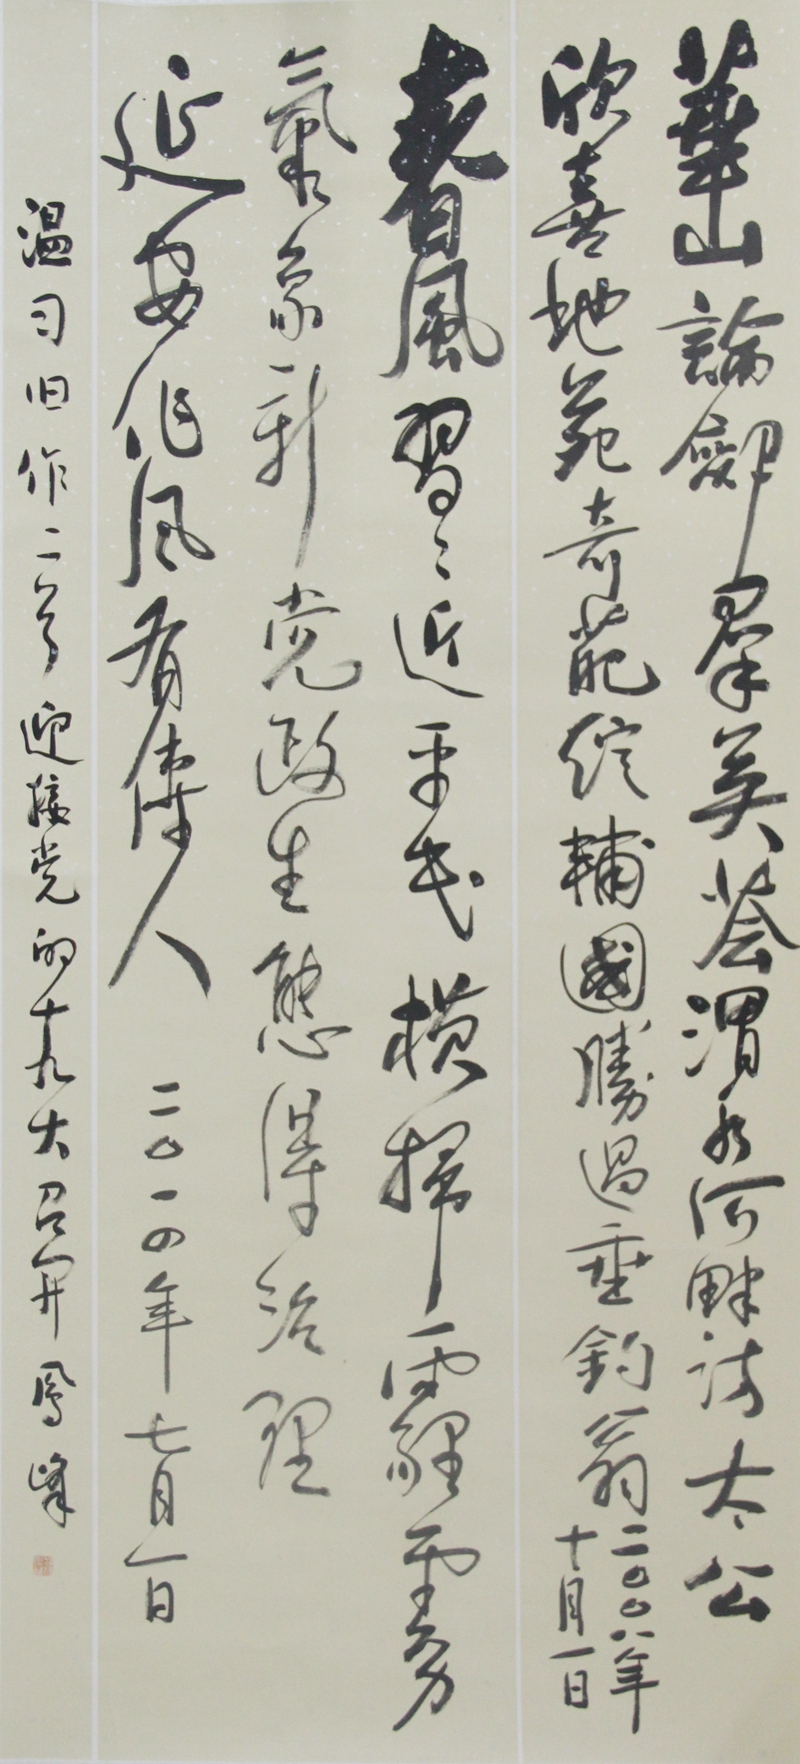 華山論劍群英薈渭水河畔訪太公
欣喜地苑奇葩綻輔國勝過垂釣翁
二〇〇八年
十月一日
春風習習近平民橫掃霾霧
氣象新党政生態得治理
延安作风有傳人
二〇一四年七月一日
温习旧作二首迎接党的十九大召开鳳峰